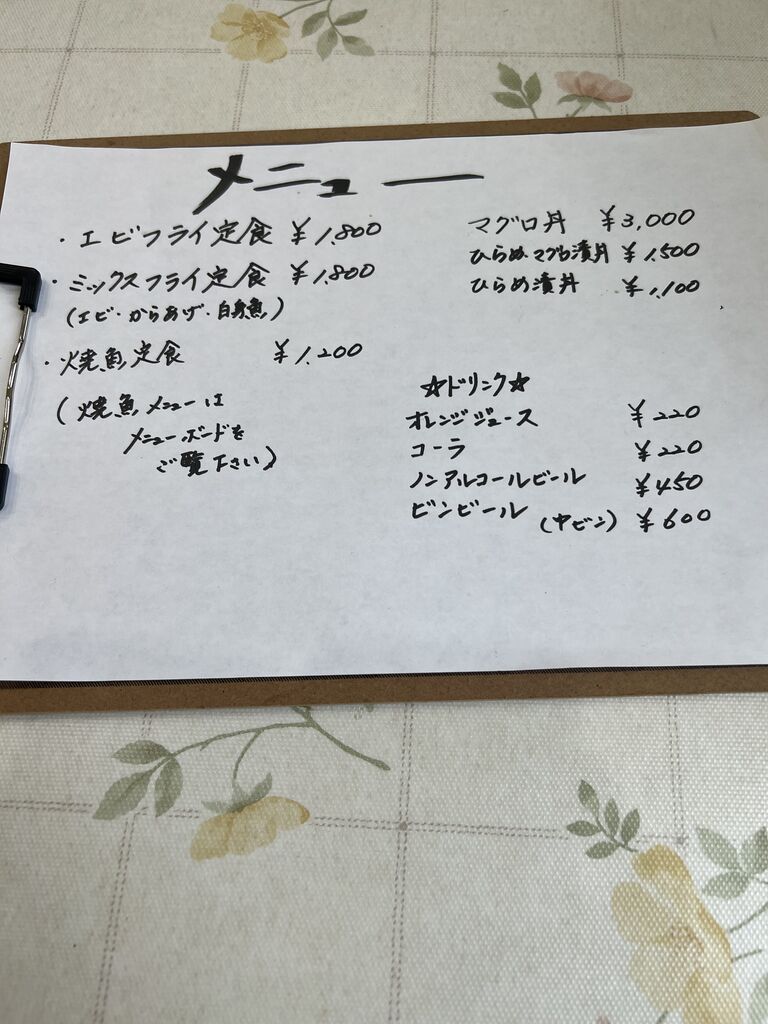 メニュー
・エビフライ定食 ¥1,800
・ミックスフライ定食 ¥1,800
(エビ・からあげ・白身魚)
・焼魚定食 ¥1,200
(焼魚メニューは
メニューボードを
ご覧下さい)
マグロ丼 ¥3,000
ひらめ・マグロ漬丼 ¥1,500
ひらめ漬丼 ¥1,100
☆ドリンク☆
オレンジジュース ¥220
コーラ ¥220
ノンアルコールビール ¥450
ビンビール (中ビン) ¥600